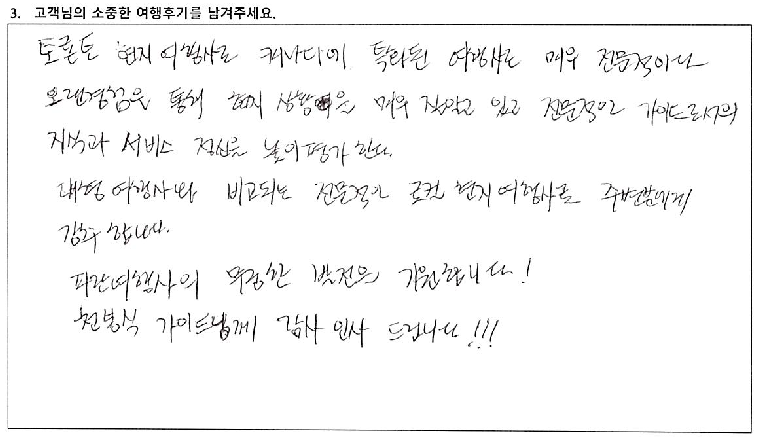 3. 고객님의 소중한 여행후기를 남겨주세요.
토론토 현지여행사로 캐나다에 특화된 여행사로 매우 전문적이다
오랜경험을 통해 현지 상황을 매우 잘알고 있고 전문적인 가이드로서의
지식과 서비스 정신을 높이평가 한다.
대형여행사와 비교되는 전문적인 로컨 현지여행사를 주변분에게
강추 합니다.
파란여행사의 무궁한 발전을 기원합니다!
천봉식 가이드님께 감사 인사 드립니다!!!